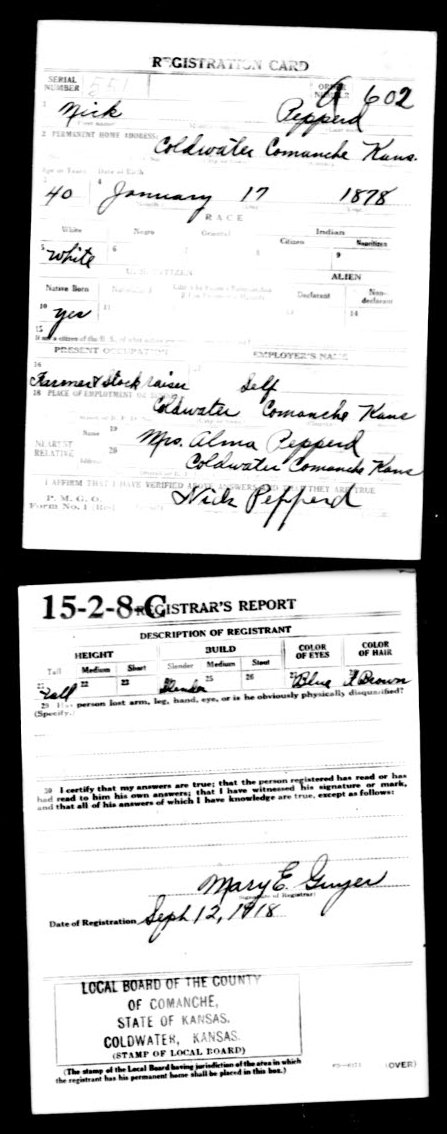 REGISTRATION CARD
SERIAL NUMBER 551 ORDER NUMBER A 602
1 Nick Pepperd
2 PERMANENT HOME ADDRESS: Coldwater Comanche Kans.
Age in Years Date of Birth
3 40 4 January 17 1878
RACE
White Negro Oriental Indian
Citizen Noncitizen
5 White 6 7 8 9
U. S. CITIZEN ALIEN
Native Born Declarant Non-declarant
10 yes 11 13 14
15
PRESENT OCCUPATION EMPLOYER'S NAME
16
Farmer & Stock raiser Self
18 PLACE OF EMPLOYMENT
Coldwater Comanche Kans
NEAREST RELATIVE Name 19 Mrs. Alma Pepperd
Address 20 Coldwater Comanche Kans
I AFFIRM THAT I HAVE VERIFIED ABOVE ANSWERS AND THAT THEY ARE TRUE
P. M. G. O.
Form No. 1 (Red) Nick Pepperd
15-2-8-C REGISTRAR'S REPORT
DESCRIPTION OF REGISTRANT
HEIGHT BUILD COLOR OF EYES COLOR OF HAIR
Tall Medium Short Slender Medium Stout
21 Tall 22 23 Slender 25 26 27 Blue Brown
29 Has person lost arm, leg, hand, eye, or is he obviously physically disqualified?
(Specify.)
30 I certify that my answers are true; that the person registered has read or has
had read to him his own answers; that I have witnessed his signature or mark,
and that all of his answers of which I have knowledge are true, except as follows:
Mary E. Guyer
(Signature of Registrar)
Date of Registration Sept 12, 1918
LOCAL BOARD OF THE COUNTY
OF COMANCHE,
STATE OF KANSAS.
COLDWATER, KANSAS.
(STAMP OF LOCAL BOARD)
(The stamp of the Local Board having jurisdiction of the area in which
the registrant has his permanent home shall be placed in this box.)
(OVER)